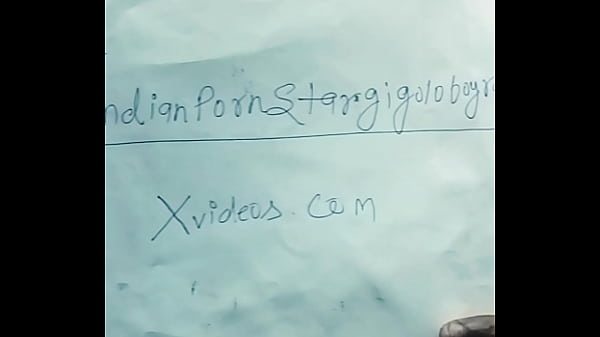 ndianPornStargigoloboyr
Xvideos.com